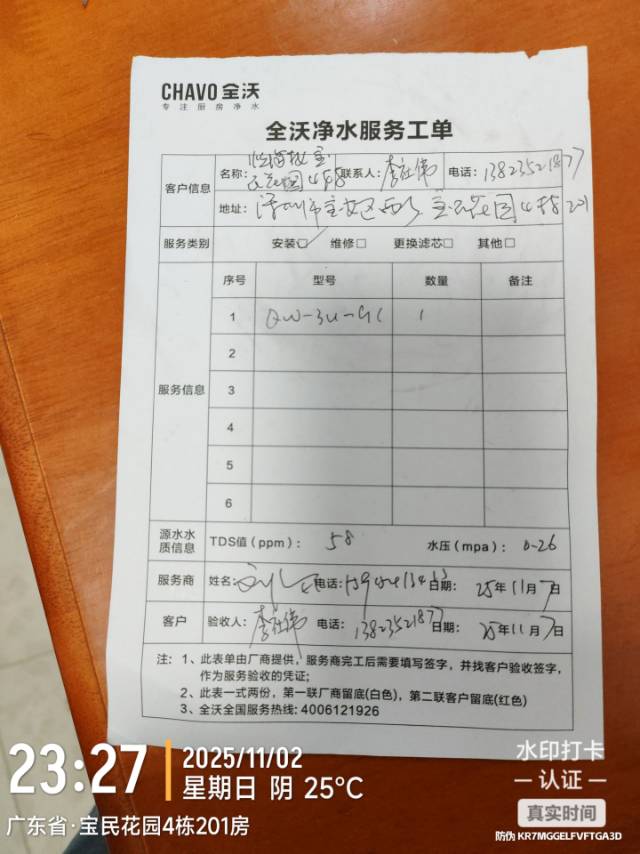 CHAVO 全沃
专注厨房净水
全沃净水服务工单
客户信息
名称： 宝民花园4栋 联系人：李社伟 电话：13823521877
地址：深圳市宝安区西乡宝民花园4栋201
服务类别 安装☑ 维修□ 更换滤芯□ 其他□
服务信息
序号 型号 数量 备注
1 QW-3U-9C 1
2
3
4
5
6
源水水质信息 TDS值（ppm）：58 水压（mpa）：0-26
服务商 姓名： 电话： 日期：25年11月7日
客户 验收人：李社伟 电话：13823521877 日期：25年11月7日
注：1、此表单由厂商提供，服务商完工后需要填写签字，并找客户验收签字，
作为服务验收的凭证；
2、此表一式两份，第一联厂商留底(白色)，第二联客户留底(红色)
3、全沃全国服务热线: 4006121926
23:27
2025/11/02
星期日 阴 25°C
广东省·宝民花园4栋201房
水印打卡
认证
真实时间
防伪 KR7MGGELFVFTGA3D